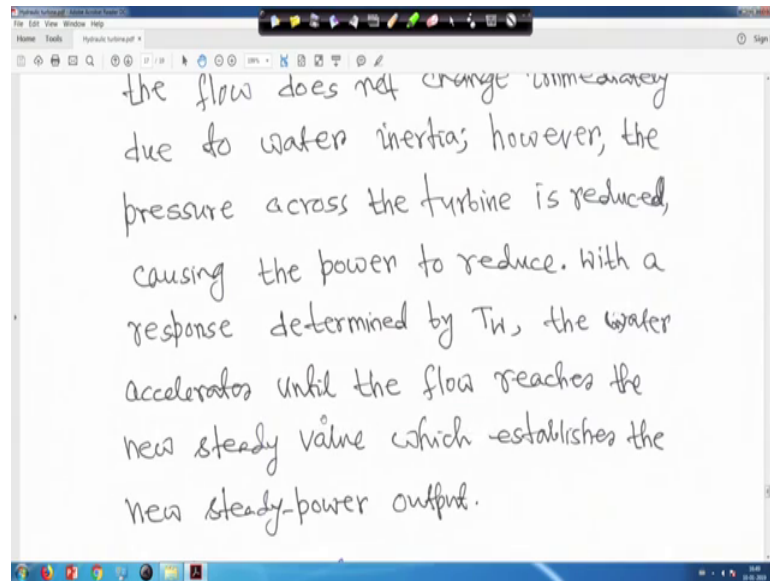 Hydraulic turbine.pdf - Adobe Acrobat Reader DC
File Edit View Window Help
Home Tools Hydraulic turbine.pdf × Sign
17 / 18
the flow does not change immediately
due to water inertia; however, the
pressure across the turbine is reduced,
causing the power to reduce. With a
response determined by TW, the water
accelerates until the flow reaches the
new steady value which establishes the
new steady-power output.